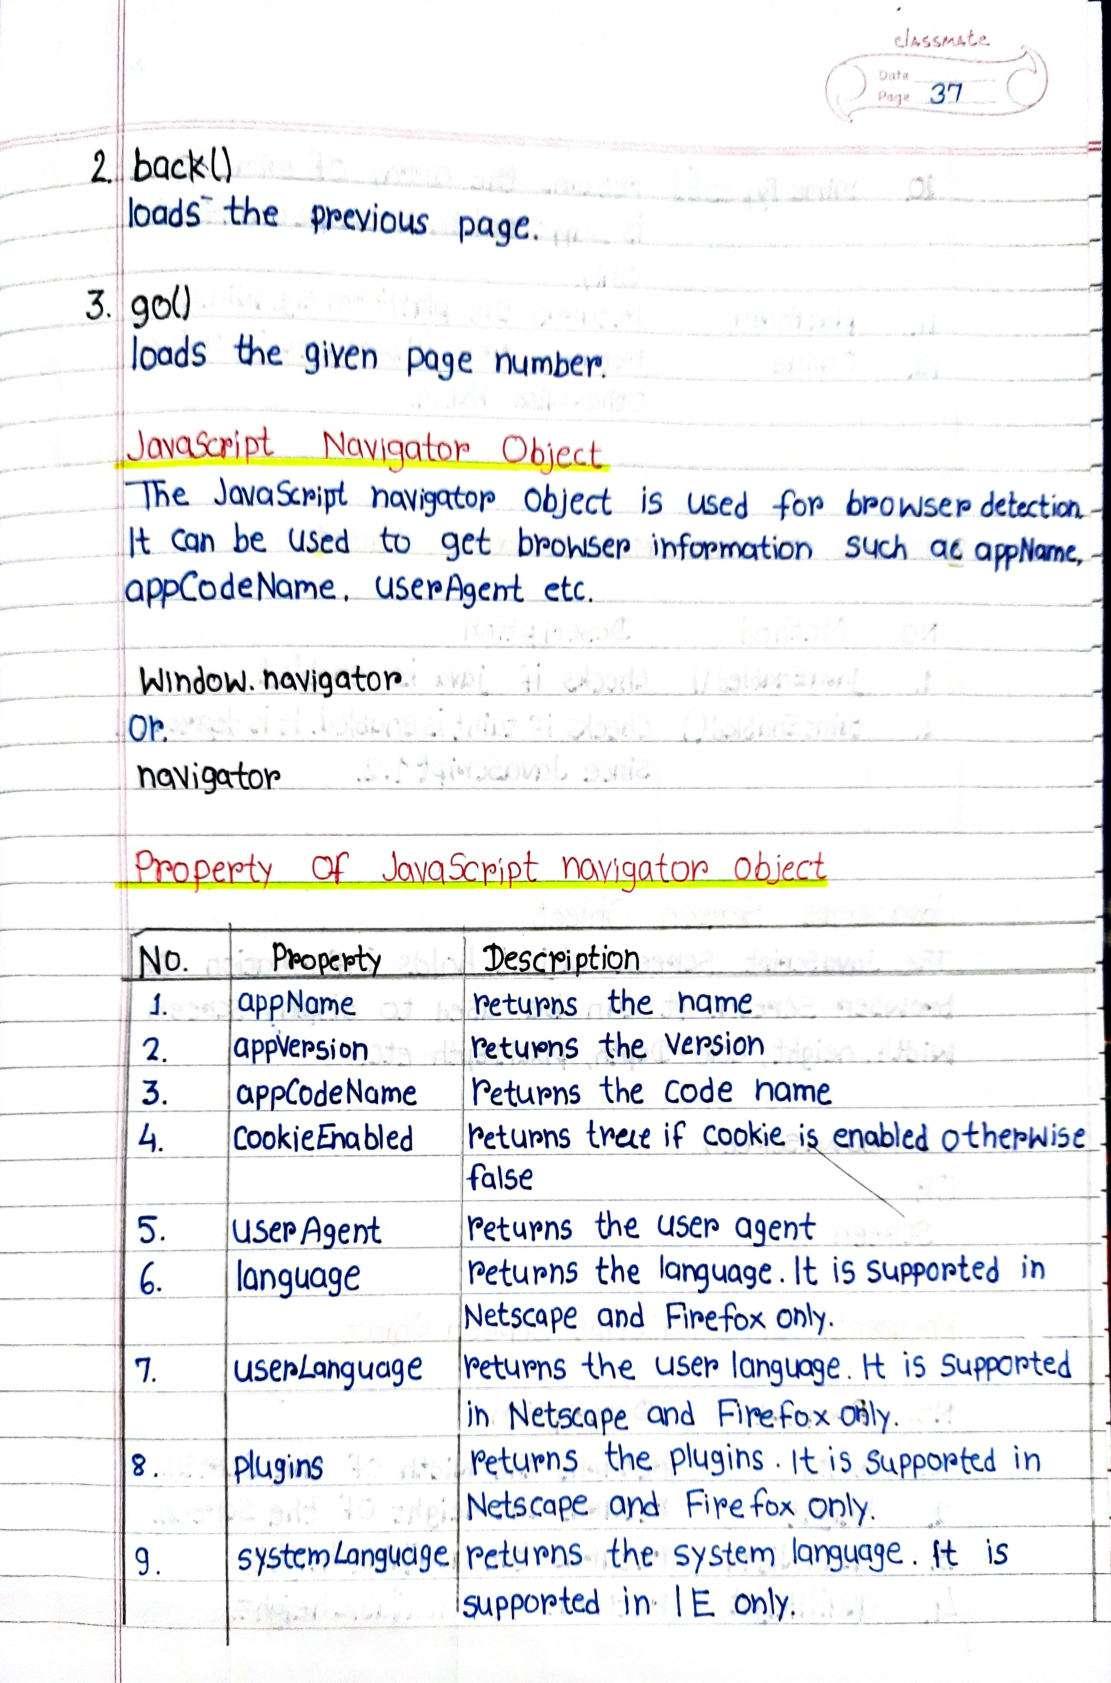 classmate
Date
Page 37
2. back()
loads the previous page.
3. go()
loads the given page number.
JavaScript Navigator Object
The JavaScript navigator object is used for browser detection.
It can be used to get browser information such as appName,
appCodeName, userAgent etc.
Window.navigator
Or.
navigator
Property Of JavaScript navigator object
No. Property Description
1. appName returns the name
2. appVersion returns the version
3. appCodeName returns the code name
4. CookieEnabled returns true if cookie is enabled otherwise
false
5. userAgent returns the user agent
6. language returns the language. It is supported in
Netscape and Firefox only.
7. userLanguage returns the user language. It is supported
in Netscape and Firefox only.
8. plugins returns the plugins. It is supported in
Netscape and Firefox only.
9. systemLanguage returns the system language. It is
supported in IE only.